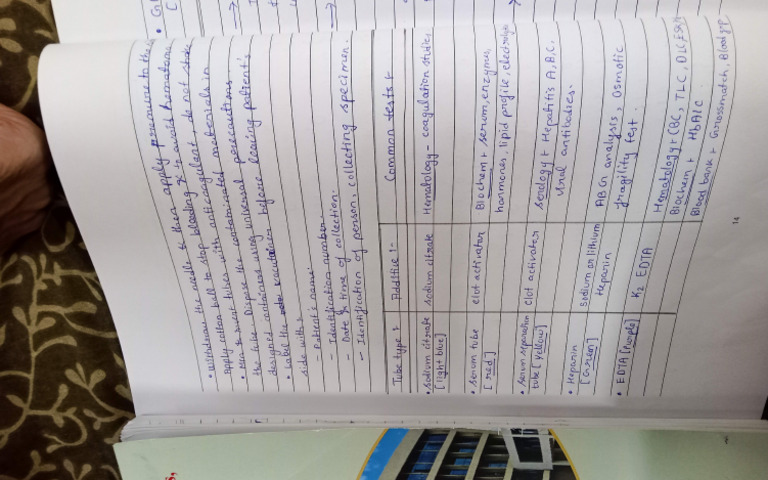 • Withdraw the needle & then apply pressure to the
apply cotton ball to stop bleeding & to avoid hematoma
• Mix & invert tubes with anticoagulant, do not shake
the tube. Dispose the contaminated materials in
designed containers using universal precautions
• Label the vacutainer before leaving patient's
side with :
- Patient's name
- Identification number.
- Date & time of collection.
- Identification of person, collecting specimen.
Tube type : Additive :- Common tests :
• sodium citrate sodium citrate Hematology - coagulation studies
[light blue]
• serum tube clot activator Biochem : serum, enzymes,
[red] hormones, lipid profile, electrolyte
• serum separation clot activator serology : Hepatitis A, B, C,
tube [yellow] viral antibodies.
• Heparin sodium or lithium ABG analysis, osmotic
[Green] Heparin fragility test.
• EDTA [Purple] K2 EDTA Hematology : CBC, TLC, DLC, ESR
Biochem : HbA1c
Blood bank : Crossmatch, Blood grp
14